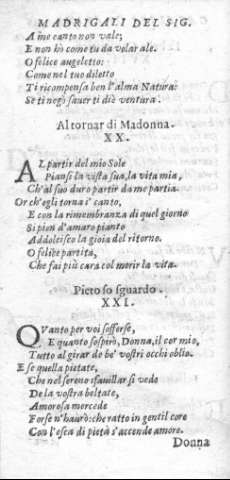 MADRIGALI DEL SIG.
A me canto non vale;
E non hò come tu da volar ale.
O felice augeletto:
Come nel tuo diletto
Ti ricompensa ben l'alma Natura:
Se ti negò sauer ti diè ventura.
Al tornar di Madonna.
XX.
AL partir del mio Sole
Piansi la vista sua, la vita mia,
Ch'al suo duro partir da me partia.
Or ch'egli torna i' canto,
E con la rimembranza di quel giorno
Sì pien d'amaro pianto
Addolcisco la gioia del ritorno.
O felice partita,
Che fai più cara col morir la vita.
Pietoso sguardo.
XXI.
QVanto per voi sofferse,
E quanto sospirò, Donna, il cor mio,
Tutto al girar de be' vostri occhi oblio.
E se quella pietate,
Che nel sereno sfauillar si vedo
De la vostra beltate,
Amorosa mercede
Forse n'haurò: che ratto in gentil core
Con l'esca di pietà s'accende amore.
Donna